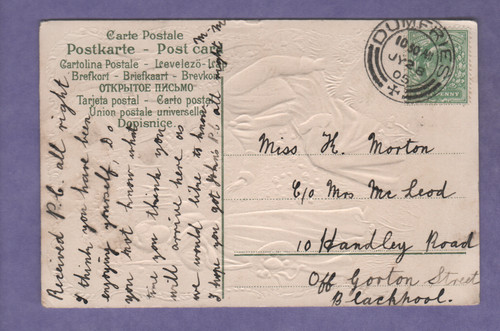 Carte Postale
Postkarte - Post card
Cartolina Postale - Levelező-Lap
Brefkort - Briefkaart - Brevkort
ОТКРЫТОЕ ПИСЬМО
Tarjeta postal - Carto postal
Union postale universelle
Dopisnice
DUMFRIES
JY 26
PENNY
Miss K. Morton
C/o Mrs McLeod
10 Handley Road
Off Gorton Street
Blackpool.
Received P.C. all right
I think you have been
enjoying yourself, Do
you not know what
time you think you
will arrive here as
we would like to know
I hope you got Hen's P.C all right M. M